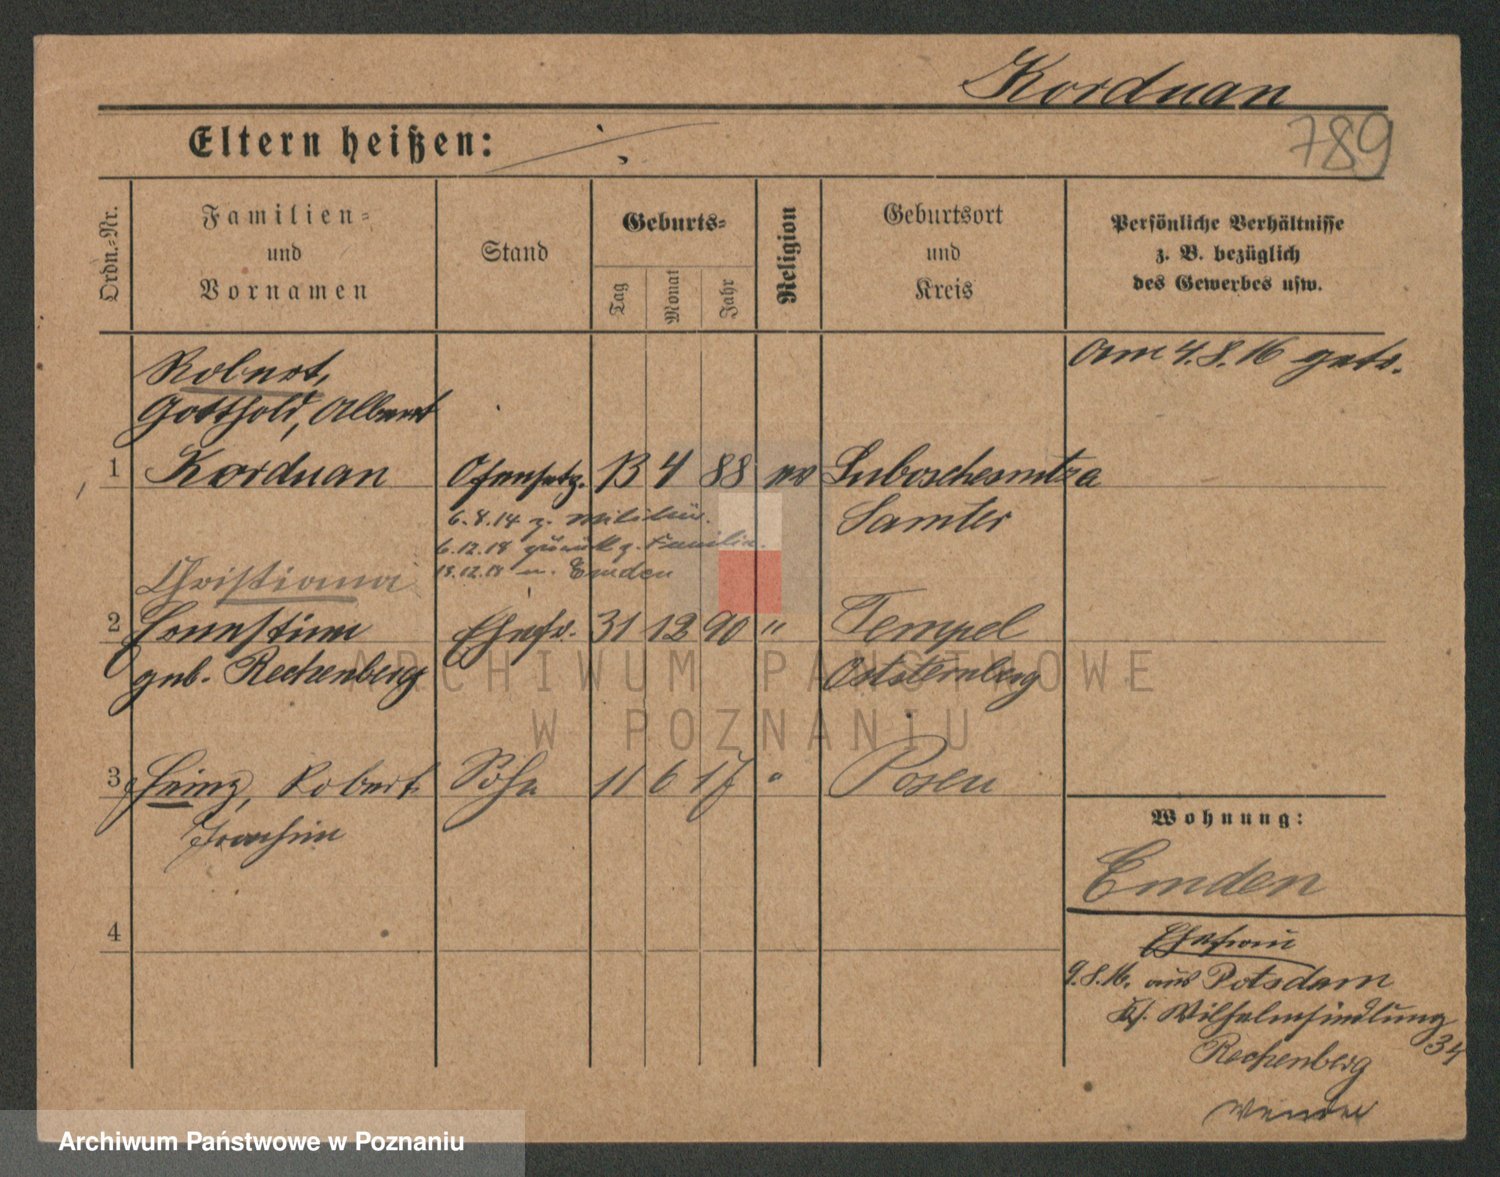 Korduan
789
Eltern heißen:
Ordn.-Nr.
Familien-
und
Vornamen
Stand
Geburts-
Tag
Monat
Jahr
Religion
Geburtsort
und
Kreis
Persönliche Verhältnisse
z. B. bezüglich
des Gewerbes usw.
Robert,
Gotthold, Albert
am 4.8.16 getr.
1 Korduan Ofensetz. 13 4 88 ev
Samter
6.8.14 z. Militär.
6.12.18 zurück z. Familie.
18.12.18 n. Emden
Christiana
2 Ernestine Ehefr. 31 12 90 " Tempel
geb. Rechenberg Oststernberg
3 Heinz, Robert Sohn 11 6 17 " Posen
Joachim
Wohnung:
Emden
4
Ehefrau
9.8.16. aus Potsdam
Wilhelmsiedlung
34
Rechenberg
wenden
ARCHIWUM PAŃSTWOWE
W POZNANIU
Archiwum Państwowe w Poznaniu